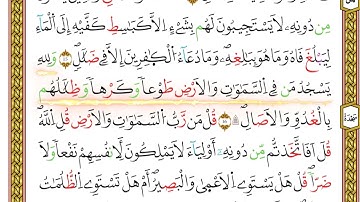 مِن دُونِهِۦ لَا يَسْتَجِيبُونَ لَهُم بِشَىْءٍ إِلَّا كَبَٰسِطِ كَفَّيْهِ إِلَى ٱلْمَآءِ
لِيَبْلُغَ فَاهُ وَمَا هُوَ بِبَٰلِغِهِۦ ۚ وَمَا دُعَآءُ ٱلْكَٰفِرِينَ إِلَّا فِى ضَلَٰلٍ ۝١٤ وَلِلَّهِ
يَسْجُدُ مَن فِى ٱلسَّمَٰوَٰتِ وَٱلْأَرْضِ طَوْعًا وَكَرْهًا وَظِلَٰلُهُم
بِٱلْغُدُوِّ وَٱلْءَاصَالِ ۩ ۝١٥ قُلْ مَن رَّبُّ ٱلسَّمَٰوَٰتِ وَٱلْأَرْضِ قُلِ ٱللَّهُ ۚ
قُلْ أَفَٱتَّخَذْتُم مِّن دُونِهِۦٓ أَوْلِيَآءَ لَا يَمْلِكُونَ لِأَنفُسِهِمْ نَفْعًا وَلَا
ضَرًّا ۚ قُلْ هَلْ يَسْتَوِى ٱلْأَعْمَىٰ وَٱلْبَصِيرُ أَمْ هَلْ تَسْتَوِى ٱلظُّلُمَٰتُ